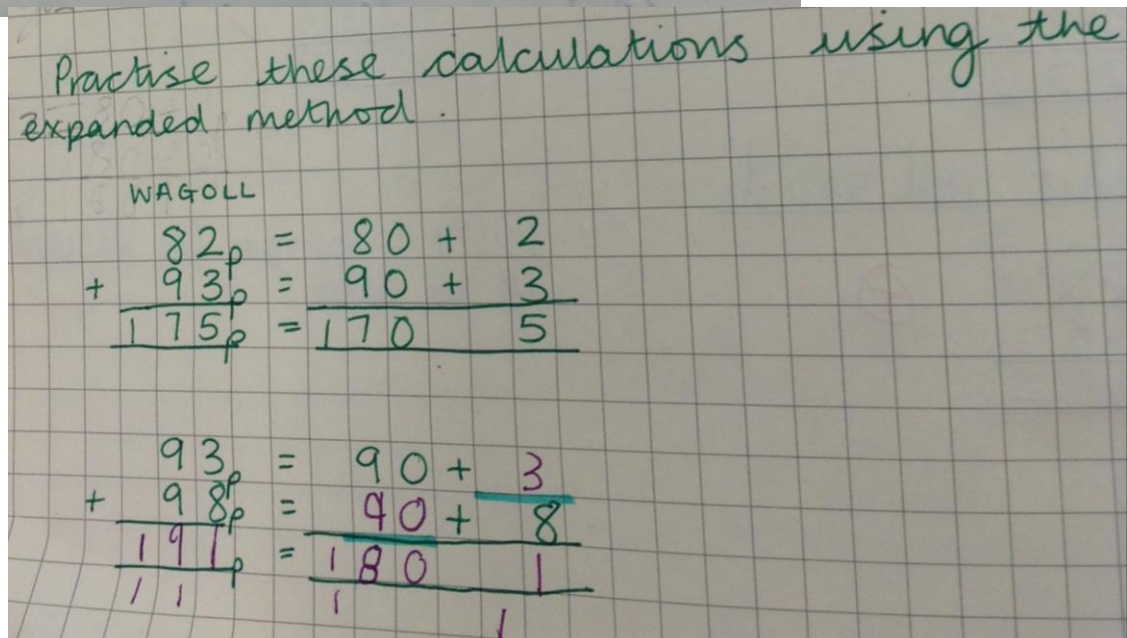 Practise these calculations using the
expanded method.
WAGOLL
82p = 80 + 2
+ 93p = 90 + 3
175p = 170 5
93p = 90 + 3
+ 98p = 90 + 8
191p = 180 1
1 1 1 1